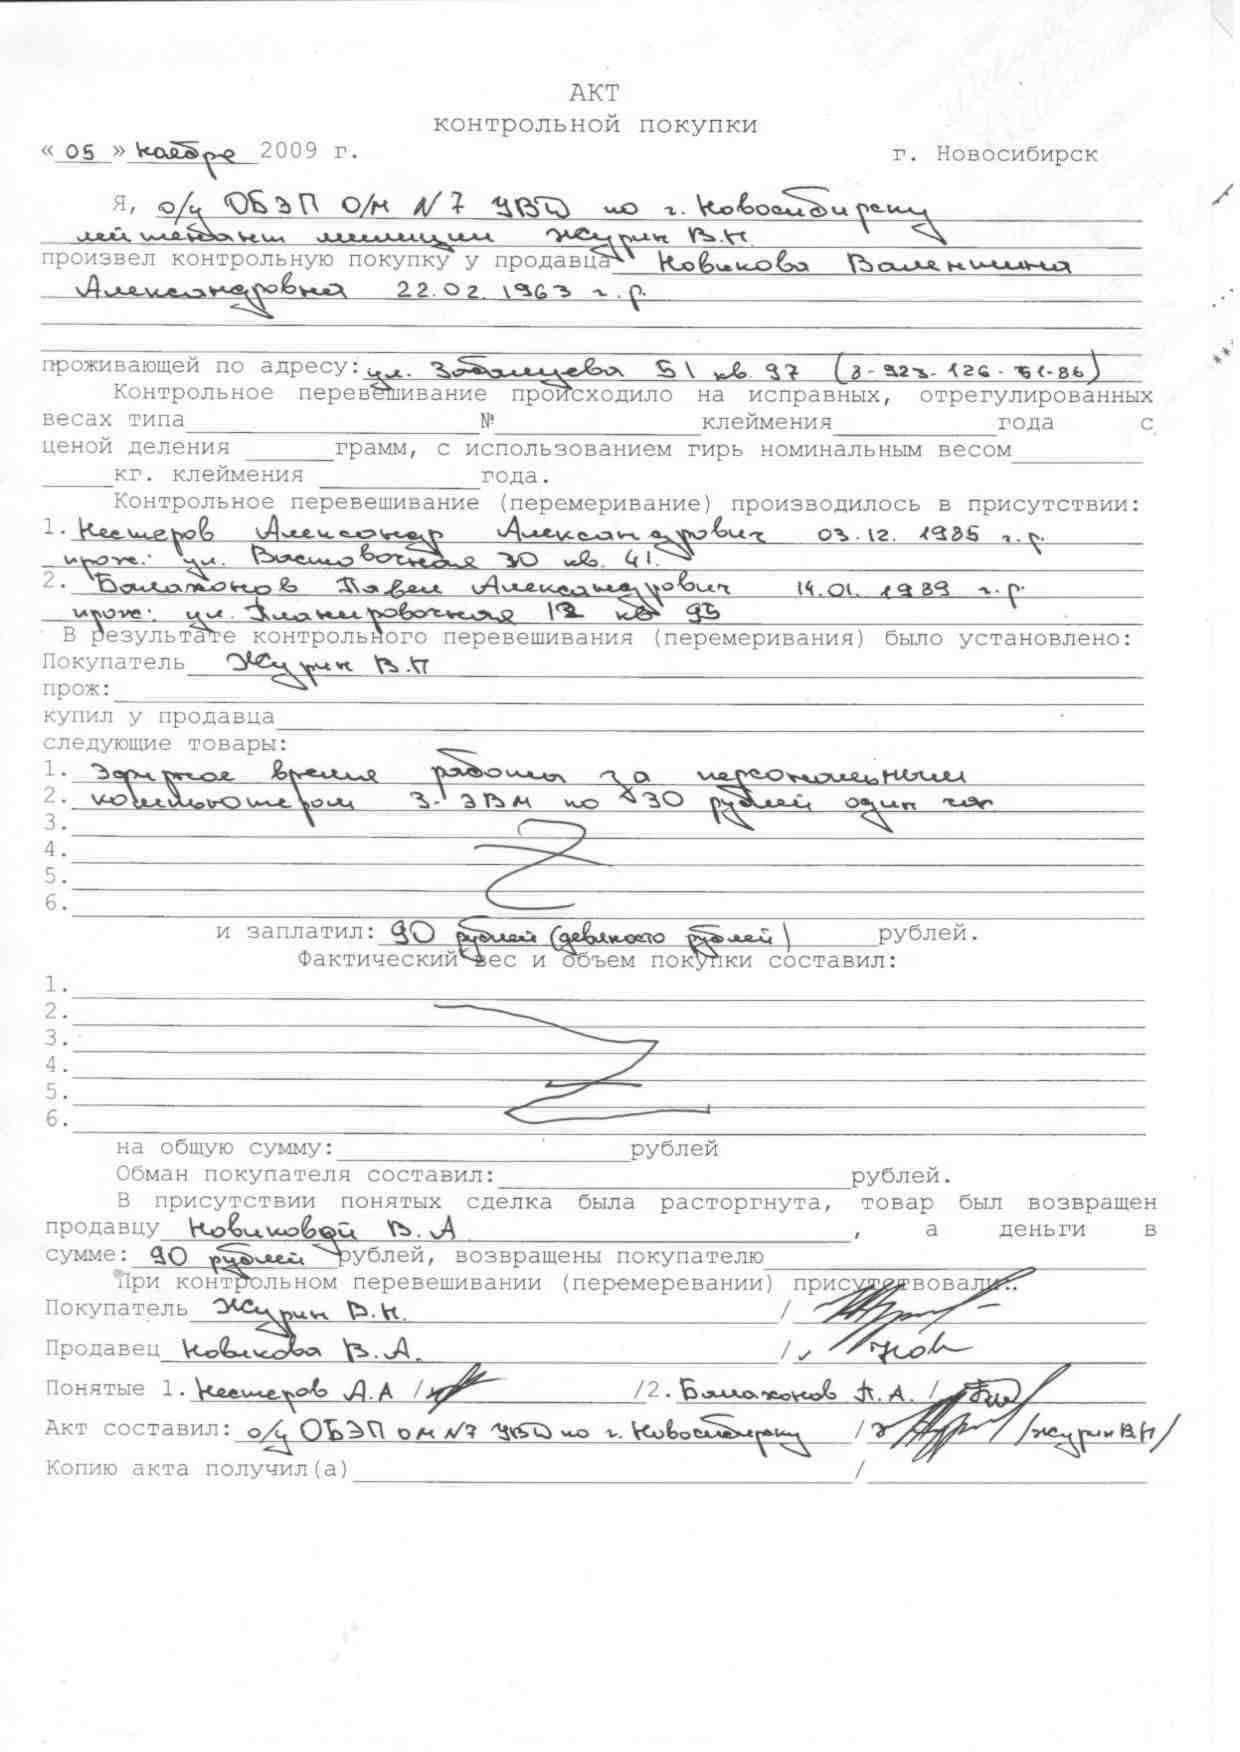 АКТ
контрольной покупки
«05» ноября 2009 г. г. Новосибирск
Я, о/у ОБЭП О/М N7 УВД по г. Новосибирску
лейтенант милиции Журин В.Н.
произвел контрольную покупку у продавца Новикова Валентина
Александровна 22.02.1963 г.р.
проживающей по адресу: ул. 51 кв. 97 (8-923-126-51-86)
Контрольное перевешивание происходило на исправных, отрегулированных
весах типа № клеймения года с
ценой деления грамм, с использованием гирь номинальным весом
кг. клеймения года.
Контрольное перевешивание (перемеривание) производилось в присутствии:
1. Нестеров Александр Александрович 03.12.1985 г.р.
прож: ул. Восточная 30 кв. 41.
2. Балахонов Павел Александрович 14.01.1989 г.р.
прож: ул. Планировочная 12 кв 95
В результате контрольного перевешивания (перемеривания) было установлено:
Покупатель Журин В.Н
прож:
купил у продавца
следующие товары:
1. Эфирное время работы за персональным
2. компьютером 3 ЭВМ по 30 рублей один час
3.
4.
5.
6.
и заплатил: 90 рублей (девяносто рублей) рублей.
Фактический вес и объем покупки составил:
1.
2.
3.
4.
5.
6.
на общую сумму: рублей
Обман покупателя составил: рублей.
В присутствии понятых сделка была расторгнута, товар был возвращен
продавцу Новиковой В.А , а деньги в
сумме: 90 рублей рублей, возвращены покупателю
При контрольном перевешивании (перемеревании) присутствовали:
Покупатель Журин В.Н. /
Продавец Новикова В.А. / Нов
Понятые 1. Нестеров А.А / /2. Балахонов П.А. /
Акт составил: о/у ОБЭП ОМ N7 УВД по г. Новосибирску / /Журин В.Н/
Копию акта получил(а) /